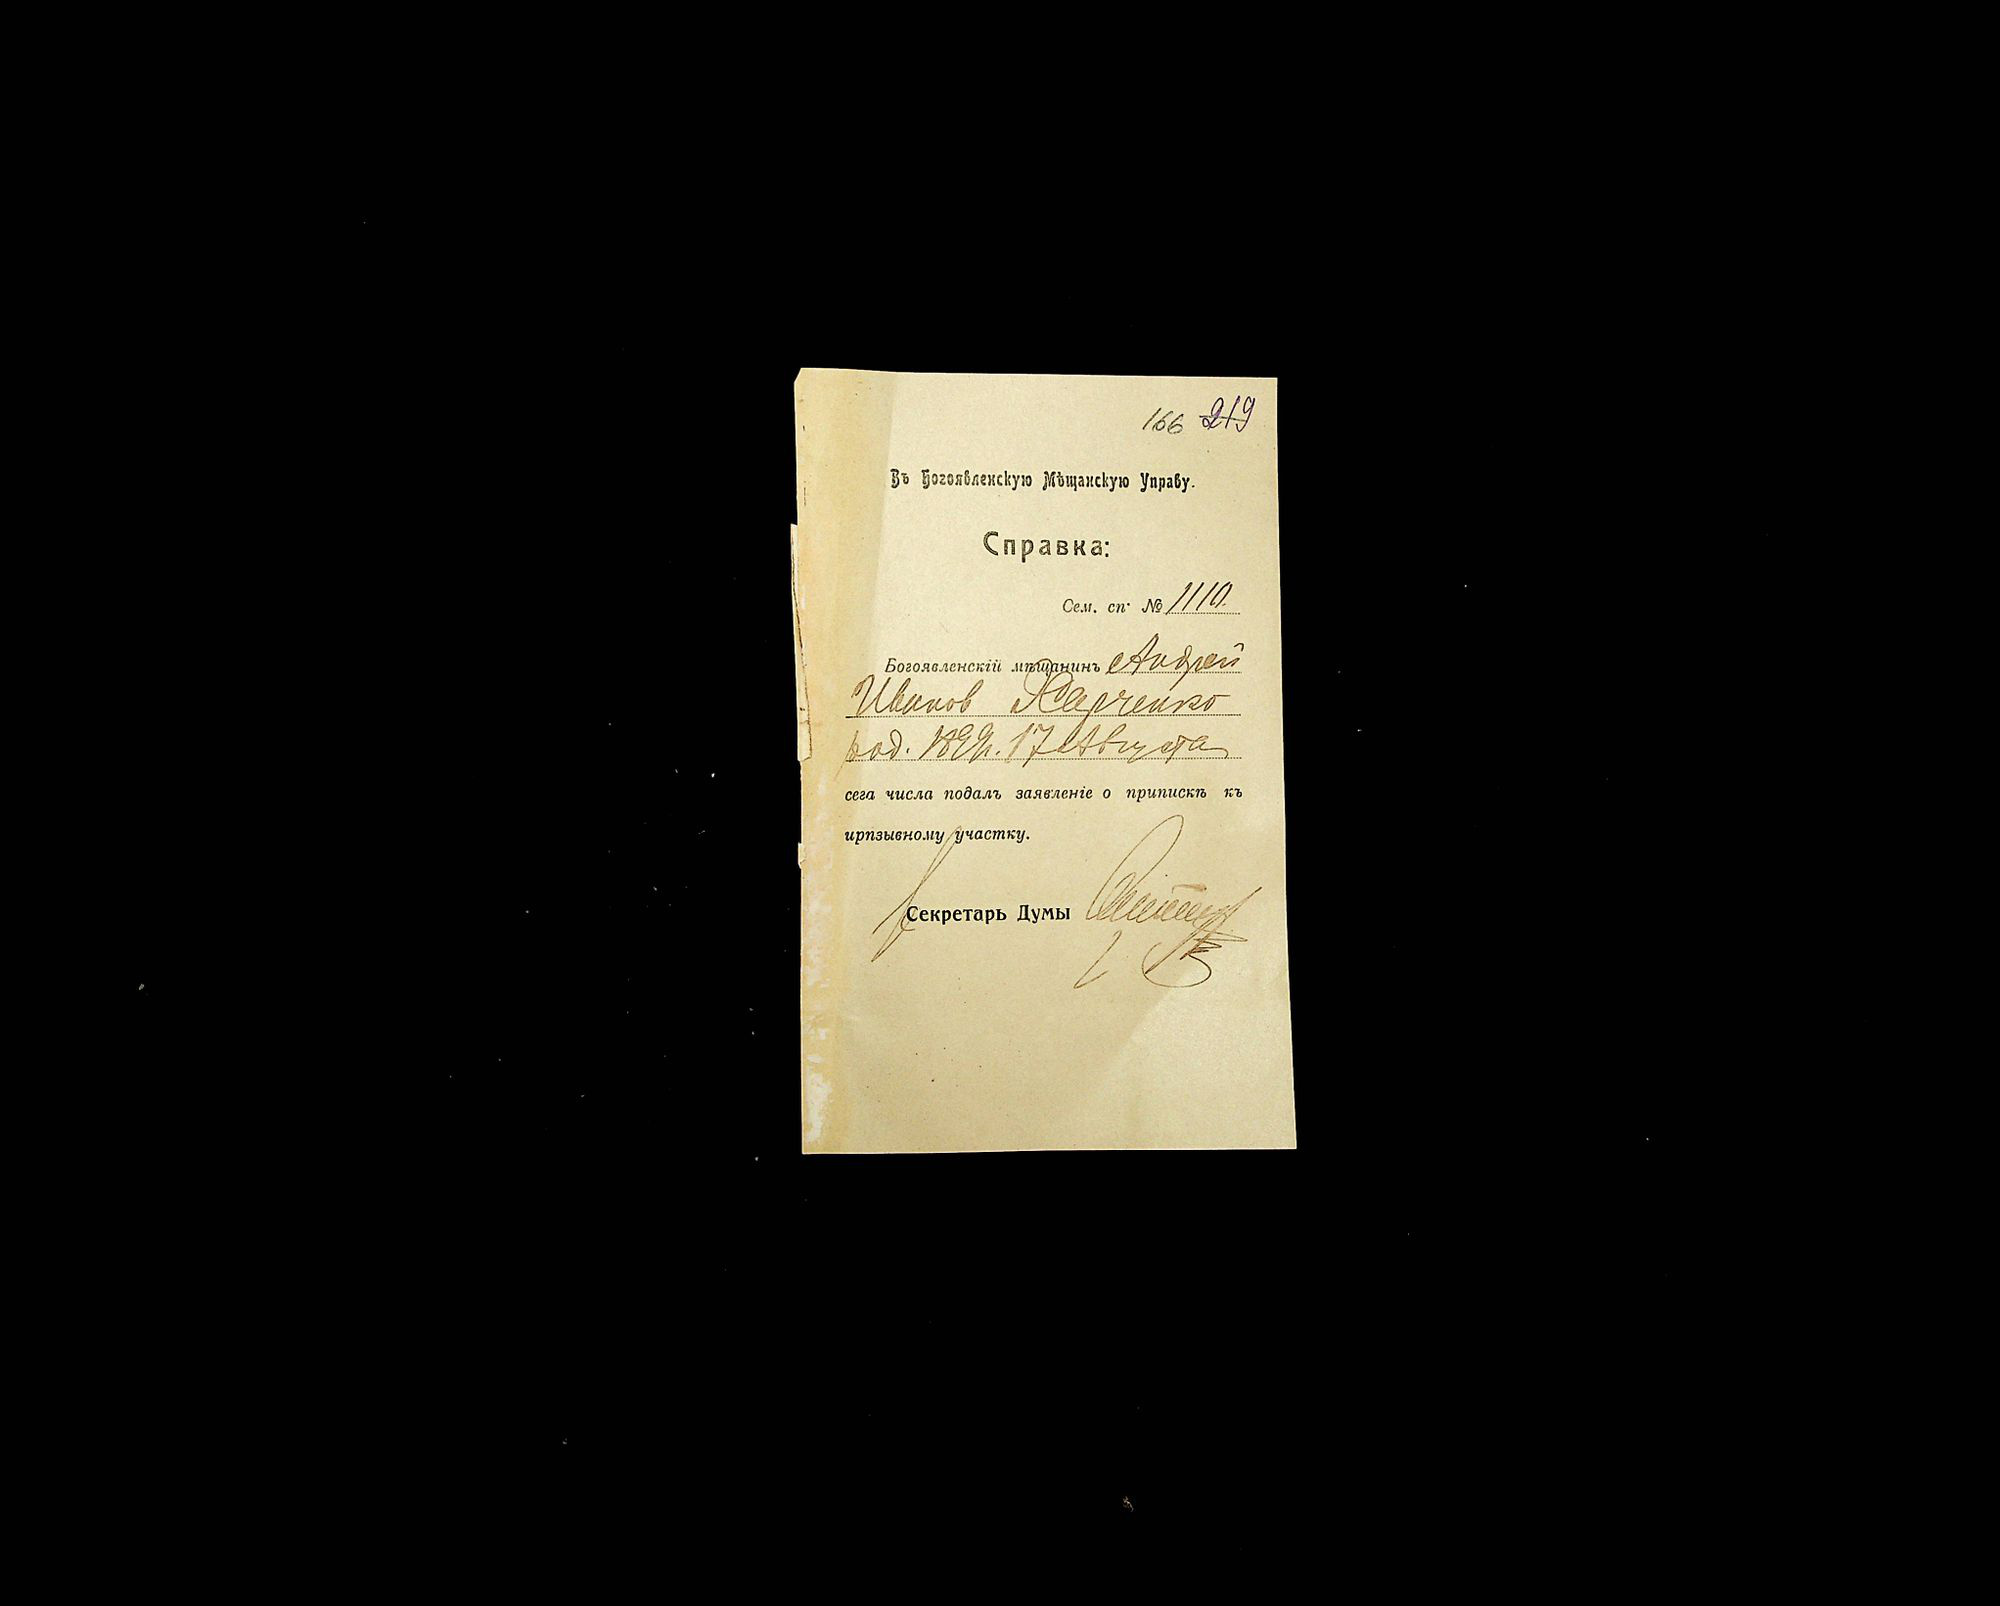 166 219
Въ Богоявленскую Мѣщанскую Управу.
Справка:
Сем. сп· № 1110.
Богоявленскій мѣщанинъ Андрей
Иванов Харченко
род. 17 Августа
сега числа подалъ заявленіе о припискѣ къ
ирпзывному участку.
Секретарь Думы